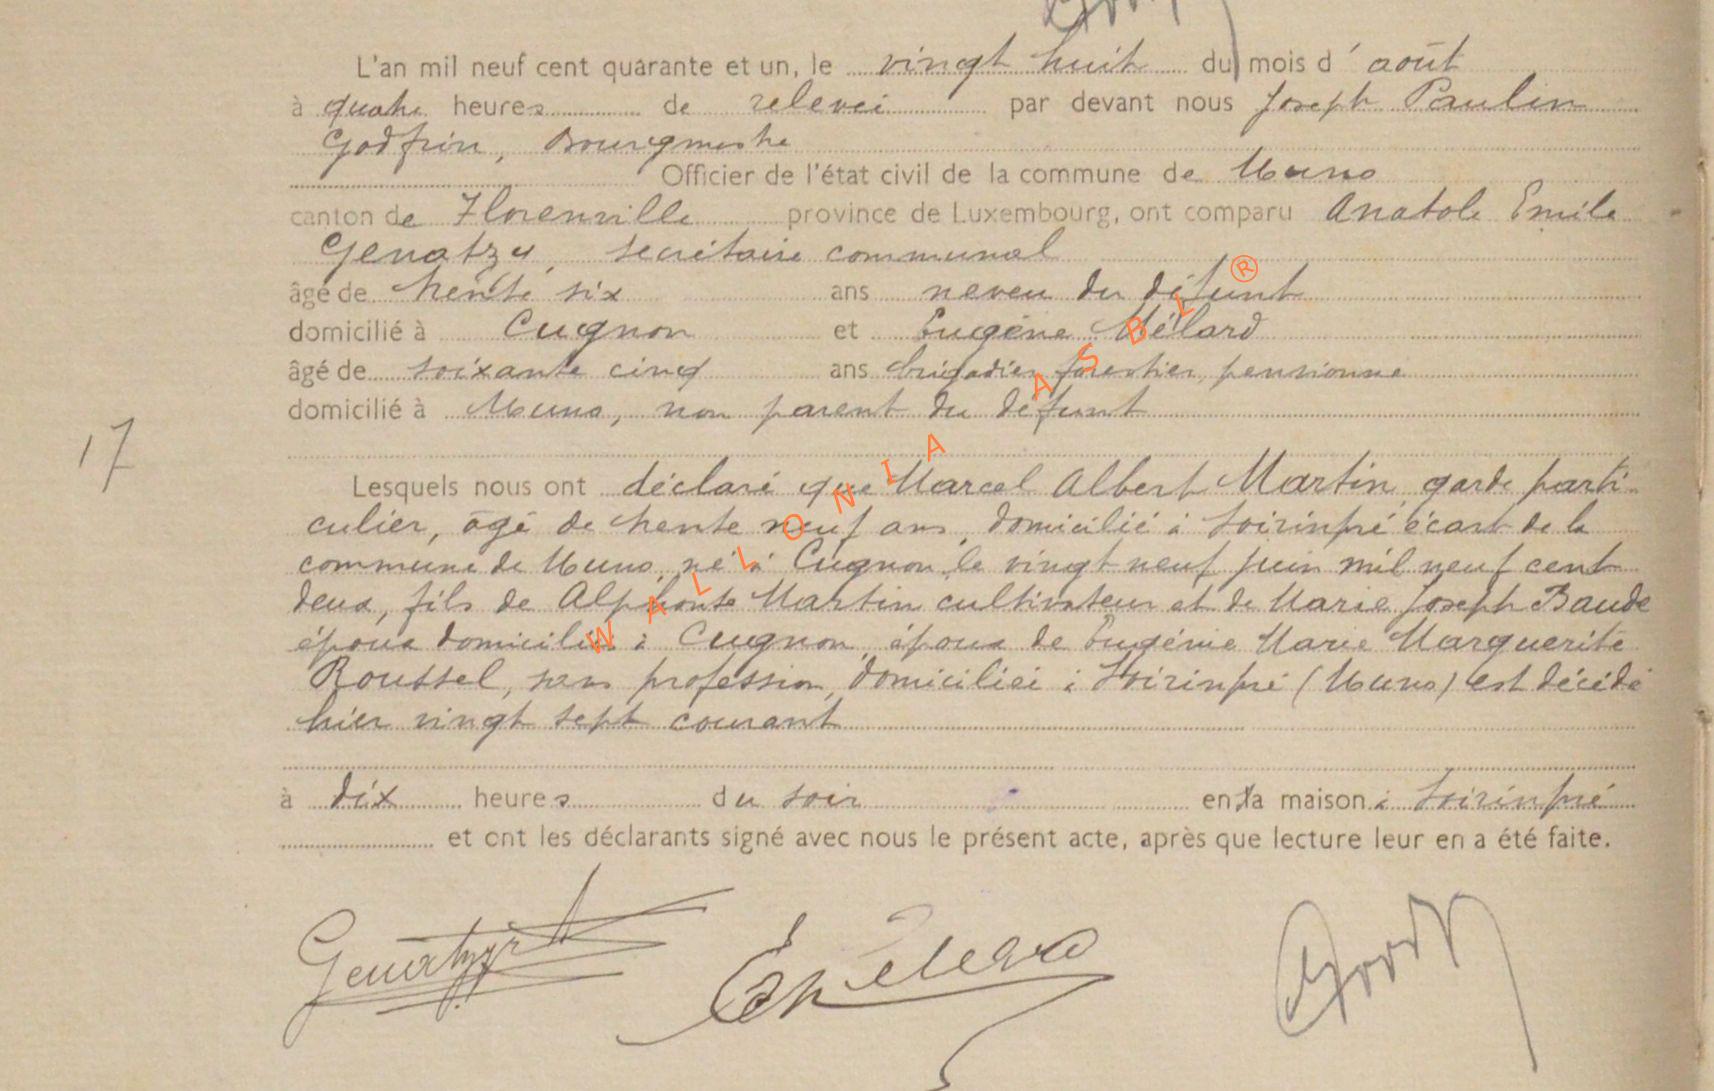 L'an mil neuf cent quarante et un, le vingt huit du mois d' août
à quatre heures de relevée par devant nous Joseph Paulin
Godfrin, Bourgmestre
Officier de l'état civil de la commune de Muno
canton de Florenville province de Luxembourg, ont comparu Anatole Emile
Genatzy, secrétaire communal
âgé de trente six ans neveu du défunt
domicilié à Cugnon et Eugène Mélard
âgé de soixante cinq ans brigadier forestier, pensionné
domicilié à Muno, non parent du défunt
17
Lesquels nous ont déclaré que Marcel Albert Martin, garde parti-
culier, âgé de trente neuf ans, domicilié à Soirinpré écart de la
commune de Muno, né à Cugnon, le vingt neuf juin mil neuf cent
deux, fils de Alphonse Martin cultivateur et de Marie Joseph Baude
époux domiciliés à Cugnon, époux de Eugénie Marie Marguerite
Roussel, sans profession, domiciliée à Soirinpré (Muno) est décédé
hier vingt sept courant
à dix heures du soir en la maison à Soirinpré
et ont les déclarants signé avec nous le présent acte, après que lecture leur en a été faite.
Genatzy
WALLONIA ASBL ®